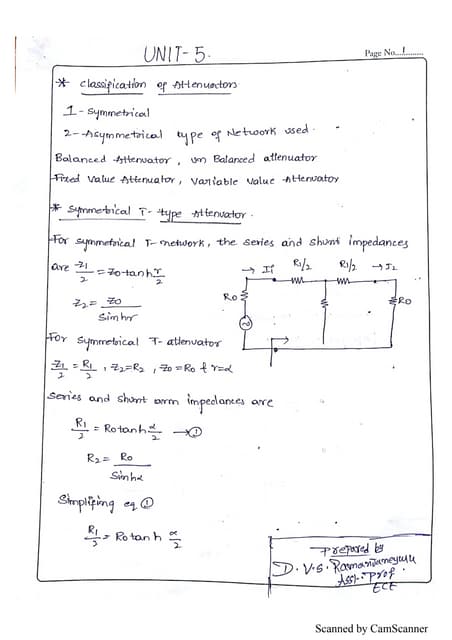 UNIT-5.
Page No...1........
* classification of Attenuators
1- symmetrical
2--Asymmetrical type of Network used.
Balanced Attenuator, un Balanced attenuator
Fixed value Attenuator, variable value Attenuator
* symmetrical T- type Attenuator.
For symmetrical T- network, the series and shunt impedances
are Z1/2 = Zo tanh r/2
→ I1 R1/2 R1/2 → I2
Ro Ro
Z2 = Zo/Sinhr
For symmetrical T- attenuator
Z1/2 = R1/2, Z2=R2, Zo=Ro & r=α
series and shunt arm impedances are
R1/2 = Ro tanh α/2 → ①
R2 = Ro/Sinhα
Simplifing eq ①
R1/2 = Ro tanh α/2
Prepared by
D.V.S. Ramanjaneyulu
Asst. Prof
ECE
Scanned by CamScanner